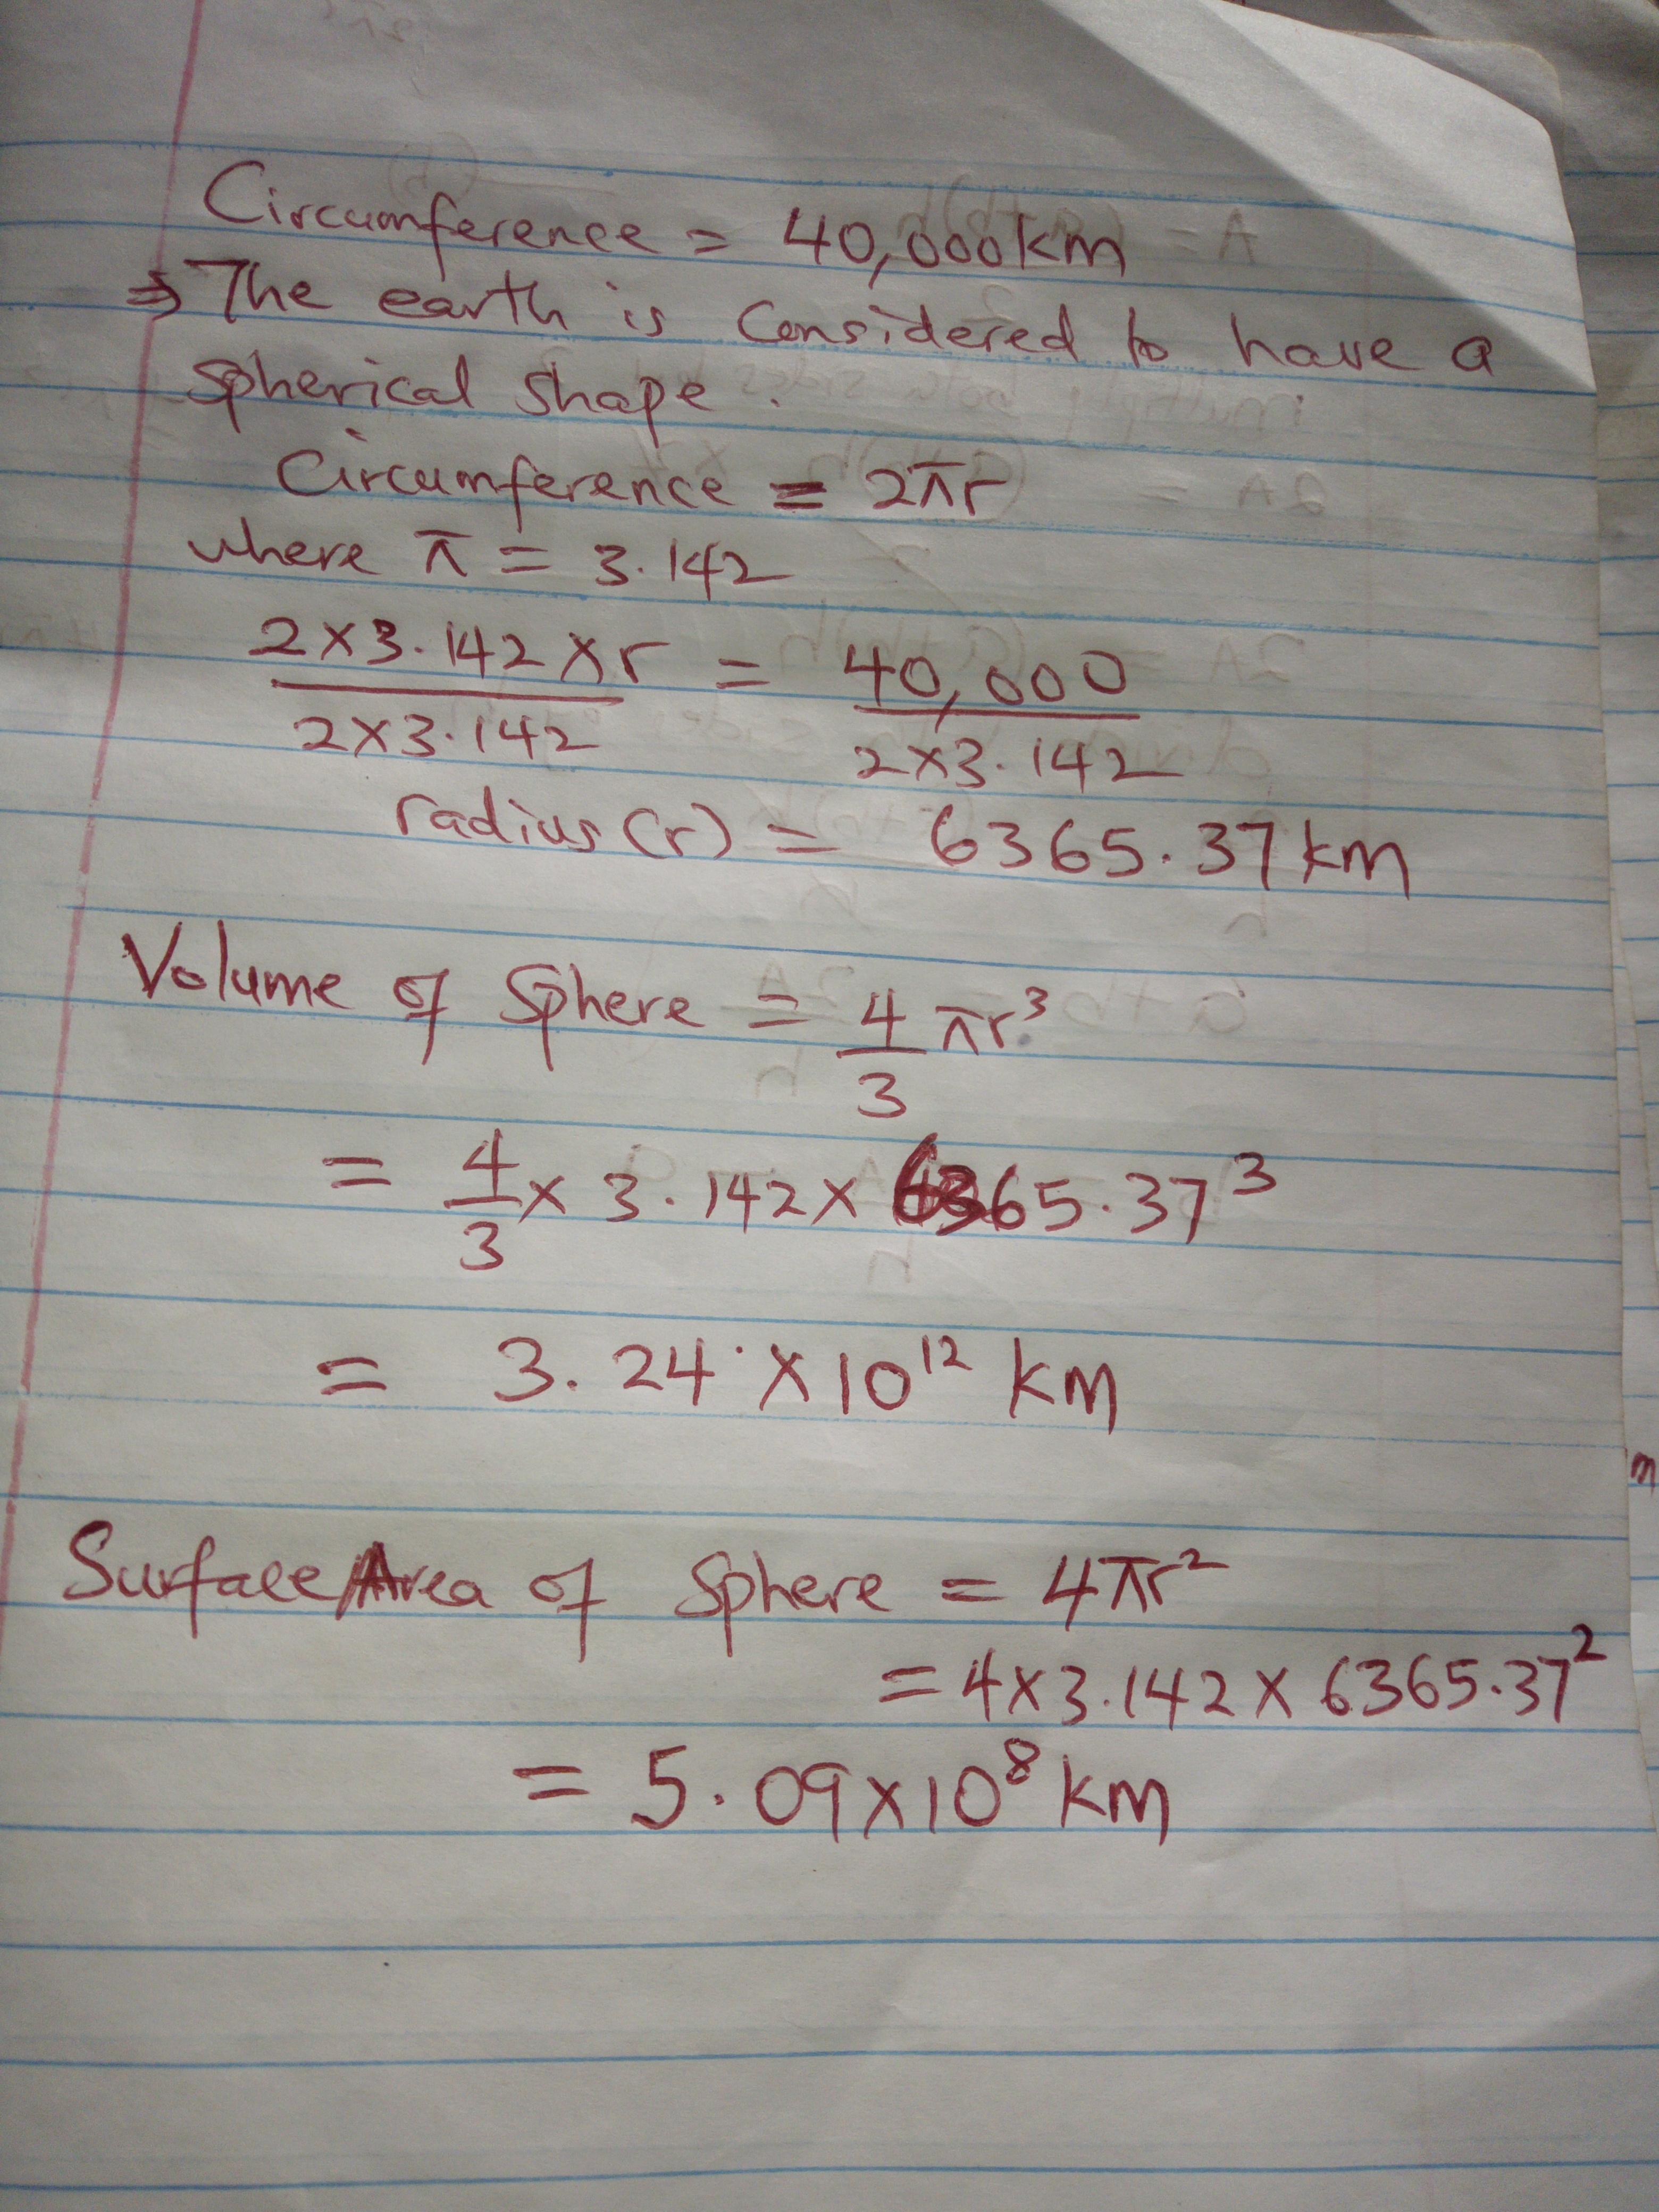 Circumference = 40,000km
⇒ The earth is considered to have a
spherical shape.
Circumference = 2πr
where π = 3.142
2×3.142×r = 40,000
2×3.142 2×3.142
radius(r) = 6365.37km
Volume of Sphere = 4/3 πr³
= 4/3 × 3.142 × 6365.37³
= 3.24 × 10¹² km
Surface Area of Sphere = 4πr²
= 4×3.142×6365.37²
= 5.09×10⁸ km
m